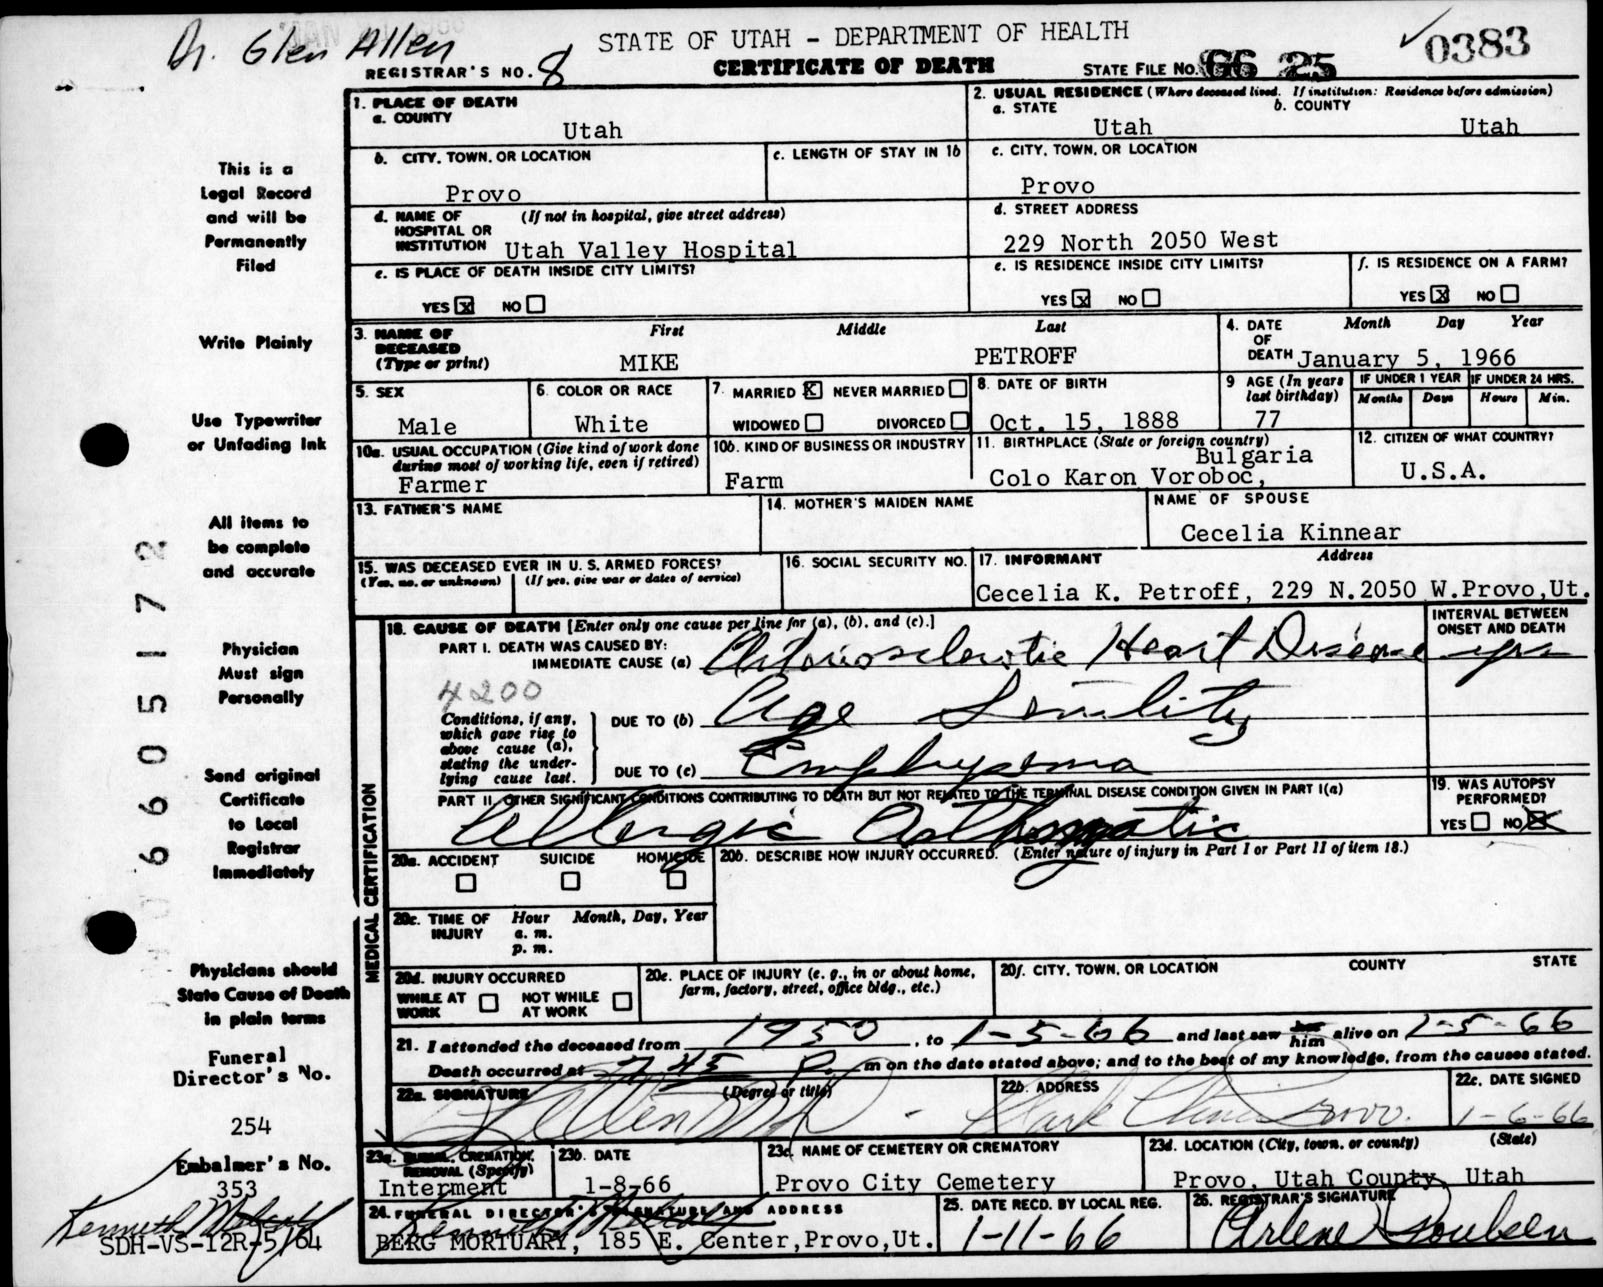 Dr. Glen Allen
STATE OF UTAH - DEPARTMENT OF HEALTH
0383
REGISTRAR'S NO. 8
CERTIFICATE OF DEATH
STATE FILE NO. 66 25
This is a
Legal Record
and will be
Permanently
Filed
Write Plainly
Use Typewriter
or Unfading Ink
All items to
be complete
and accurate
Physician
Must sign
Personally
Send original
Certificate
to Local
Registrar
Immediately
Physicians should
State Cause of Death
in plain terms
Funeral
Director's No.
254
Embalmer's No.
353
Kenneth Metcalf
SDH-VS-12R-5/64
66051 72
1. PLACE OF DEATH
a. COUNTY
Utah
2. USUAL RESIDENCE (Where deceased lived. If institution: Residence before admission)
a. STATE b. COUNTY
Utah Utah
b. CITY, TOWN, OR LOCATION
Provo
c. LENGTH OF STAY IN 1b
c. CITY, TOWN, OR LOCATION
Provo
d. NAME OF (If not in hospital, give street address)
HOSPITAL OR
INSTITUTION Utah Valley Hospital
d. STREET ADDRESS
229 North 2050 West
e. IS PLACE OF DEATH INSIDE CITY LIMITS?
YES X NO
e. IS RESIDENCE INSIDE CITY LIMITS?
YES X NO
f. IS RESIDENCE ON A FARM?
YES X NO
3. NAME OF First Middle Last
DECEASED
(Type or print) MIKE PETROFF
4. DATE Month Day Year
OF
DEATH January 5, 1966
5. SEX
Male
6. COLOR OR RACE
White
7. MARRIED X NEVER MARRIED
WIDOWED DIVORCED
8. DATE OF BIRTH
Oct. 15, 1888
9 AGE (In years
last birthday)
77
IF UNDER 1 YEAR IF UNDER 24 HRS.
Months Days Hours Min.
10a. USUAL OCCUPATION (Give kind of work done
during most of working life, even if retired)
Farmer
10b. KIND OF BUSINESS OR INDUSTRY
Farm
11. BIRTHPLACE (State or foreign country)
Bulgaria
Colo Karon Voroboc,
12. CITIZEN OF WHAT COUNTRY?
U.S.A.
13. FATHER'S NAME
14. MOTHER'S MAIDEN NAME
NAME OF SPOUSE
Cecelia Kinnear
15. WAS DECEASED EVER IN U. S. ARMED FORCES?
(Yes, no, or unknown) (If yes, give war or dates of service)
16. SOCIAL SECURITY NO.
17. INFORMANT Address
Cecelia K. Petroff, 229 N.2050 W.Provo,Ut.
MEDICAL CERTIFICATION
18. CAUSE OF DEATH [Enter only one cause per line for (a), (b), and (c).]
INTERVAL BETWEEN
ONSET AND DEATH
PART I. DEATH WAS CAUSED BY:
IMMEDIATE CAUSE (a) Arteriosclerotic Heart Disease yrs
4200
Conditions, if any,
which gave rise to
above cause (a),
stating the under-
lying cause last.
DUE TO (b) Age Senility
DUE TO (c) Emphysema
PART II. OTHER SIGNIFICANT CONDITIONS CONTRIBUTING TO DEATH BUT NOT RELATED TO THE TERMINAL DISEASE CONDITION GIVEN IN PART I(a)
Allergic Asthmatic
19. WAS AUTOPSY
PERFORMED?
YES NO X
20a. ACCIDENT SUICIDE HOMICIDE
20b. DESCRIBE HOW INJURY OCCURRED. (Enter nature of injury in Part I or Part II of item 18.)
20c. TIME OF Hour Month, Day, Year
INJURY a. m.
p. m.
20d. INJURY OCCURRED
WHILE AT NOT WHILE
WORK AT WORK
20e. PLACE OF INJURY (e. g., in or about home,
farm, factory, street, office bldg., etc.)
20f. CITY, TOWN, OR LOCATION COUNTY STATE
21. I attended the deceased from 1950, to 1-5-66 and last saw her him alive on 1-5-66
Death occurred at 7 45 P. m on the date stated above; and to the best of my knowledge, from the causes stated.
22a. SIGNATURE (Degree or title)
22b. ADDRESS
Provo.
22c. DATE SIGNED
1-6-66
23a. BURIAL, CREMATION,
REMOVAL (Specify)
Interment
23b. DATE
1-8-66
23c. NAME OF CEMETERY OR CREMATORY
Provo City Cemetery
23d. LOCATION (City, town, or county) (State)
Provo, Utah County, Utah
24. FUNERAL DIRECTOR'S SIGNATURE AND ADDRESS
Kenneth Metcalf
BERG MORTUARY, 185 E. Center,Provo,Ut.
25. DATE RECD. BY LOCAL REG.
1-11-66
26. REGISTRAR'S SIGNATURE
Arlene Poulsen